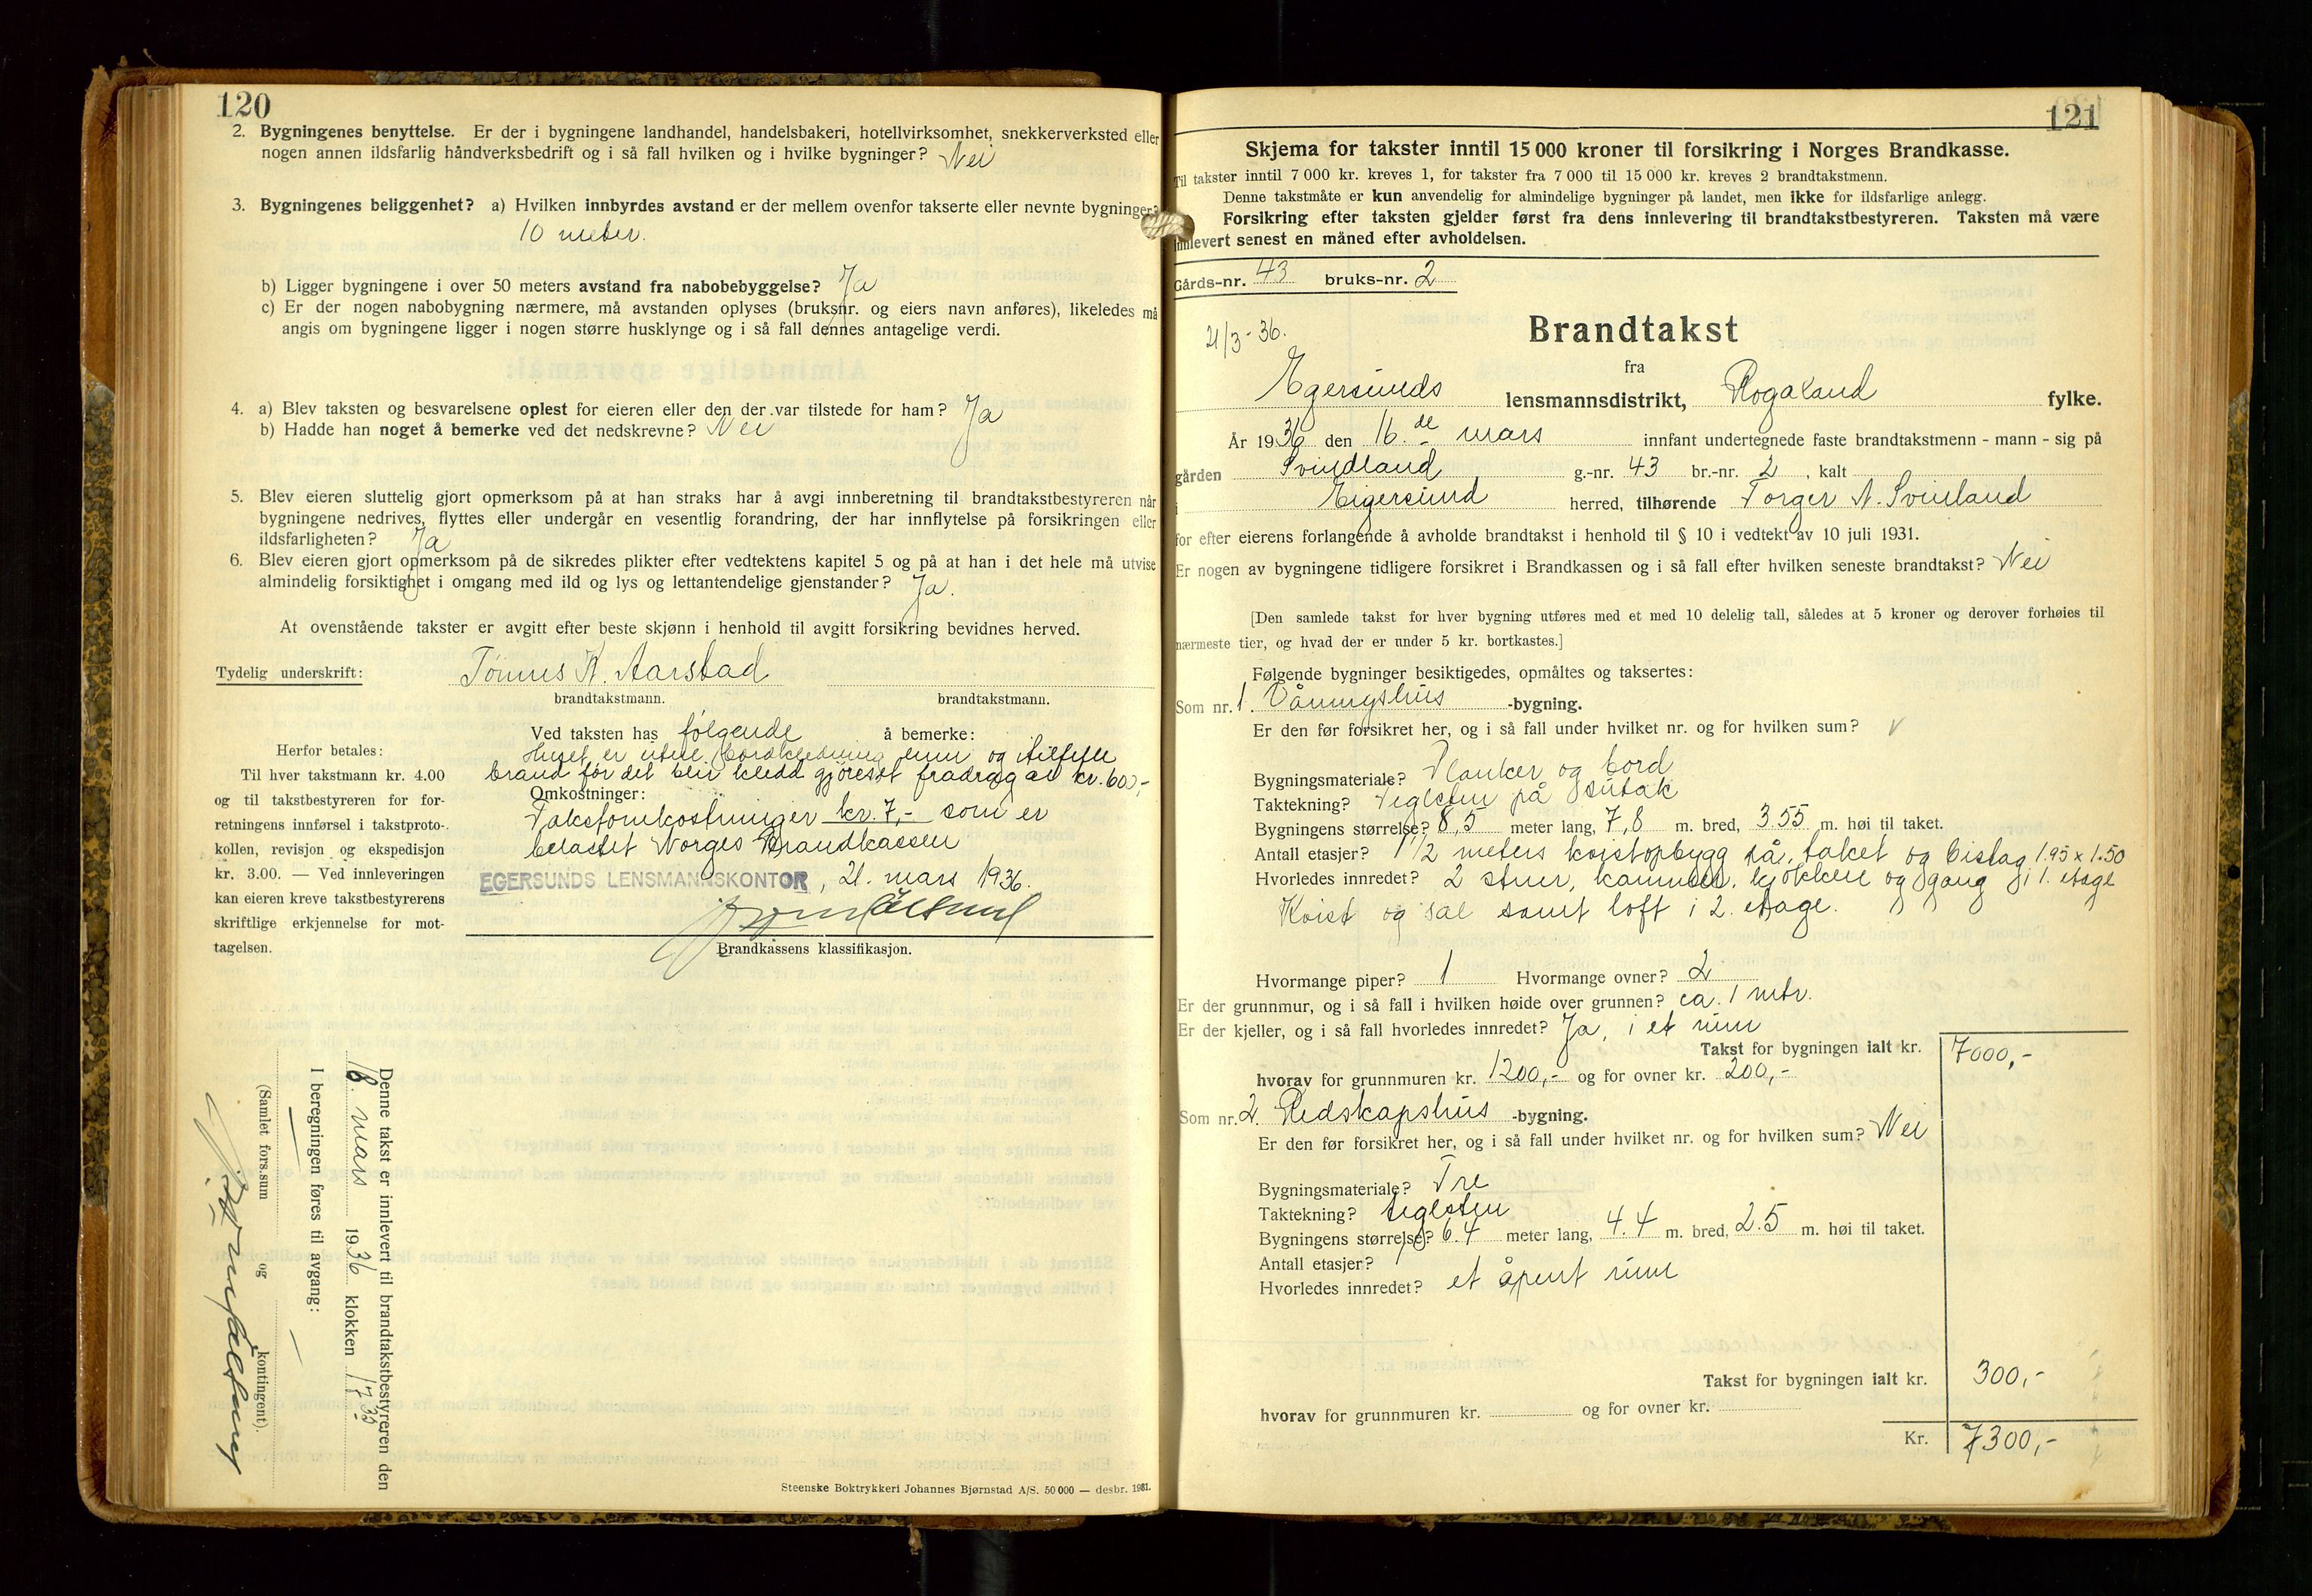 120
2. Bygningenes benyttelse. Er der i bygningene landhandel, handelsbakeri, hotellvirksomhet, snekkerverksted eller
nogen annen ildsfarlig håndverksbedrift og i så fall hvilken og i hvilke bygninger? Nei
3. Bygningenes beliggenhet? a) Hvilken innbyrdes avstand er der mellem ovenfor takserte eller nevnte bygninger?
10 meter.
b) Ligger bygningene i over 50 meters avstand fra nabobebyggelse? Ja
c) Er der nogen nabobygning nærmere, må avstanden oplyses (bruksnr. og eiers navn anføres), likeledes må
angis om bygningene ligger i nogen større husklynge og i så fall dennes antagelige verdi.
4. a) Blev taksten og besvarelsene oplest for eieren eller den der var tilstede for ham? Ja
b) Hadde han noget å bemerke ved det nedskrevne? Nei
5. Blev eieren sluttelig gjort opmerksom på at han straks har å avgi innberetning til brandtakstbestyreren når
bygningene nedrives, flyttes eller undergår en vesentlig forandring, der har innflytelse på forsikringen eller
ildsfarligheten? Ja
6. Blev eieren gjort opmerksom på de sikredes plikter efter vedtektens kapitel 5 og på at han i det hele må utvise
almindelig forsiktighet i omgang med ild og lys og lettantendelige gjenstander? Ja.
At ovenstående takster er avgitt efter beste skjønn i henhold til avgitt forsikring bevidnes herved.
Tydelig underskrift: Tönnes K. Aarstad
brandtakstmann. brandtakstmann.
Ved taksten has følgende å bemerke:
Huset er uten bordkledning ennu og tilfelle
brand før det blir kledd gjøreset fradrag av kr. 600,-
Omkostninger:
Takstomkostninger kr. 7,- som er
belastet Norges Brandkassen
EGERSUNDS LENSMANNSKONTOR, 21. mars 1936.
Brandkassens klassifikasjon.
Herfor betales:
Til hver takstmann kr. 4.00
og til takstbestyreren for for-
retningens innførsel i takstproto-
kollen, revisjon og ekspedisjon
kr. 3.00. — Ved innleveringen
kan eieren kreve takstbestyrerens
skriftlige erkjennelse for mot-
tagelsen.
Denne takst er innlevert til brandtakstbestyreren den
18. mars 1936 klokken 17 35
I beregningen føres til avgang:
(Samlet fors.sum og kontingent).
Steenske Boktrykkeri Johannes Bjørnstad A/S. 50 000 — desbr. 1931.
121
Skjema for takster inntil 15 000 kroner til forsikring i Norges Brandkasse.
Til takster inntil 7 000 kr. kreves 1, for takster fra 7 000 til 15 000 kr. kreves 2 brandtakstmenn.
Denne takstmåte er kun anvendelig for almindelige bygninger på landet, men ikke for ildsfarlige anlegg.
Forsikring efter taksten gjelder først fra dens innlevering til brandtakstbestyreren. Taksten må være
innlevert senest en måned efter avholdelsen.
Gårds-nr. 43 bruks-nr. 2
21/3-36.
Brandtakst
fra
Egersunds lensmannsdistrikt, Rogaland fylke.
År 1936 den 16.de mars innfant undertegnede faste brandtakstmenn - mann - sig på
gården Svindland g.-nr. 43 br.-nr. 2, kalt
i Eigersund herred, tilhørende Torger N. Svinland
for efter eierens forlangende å avholde brandtakst i henhold til § 10 i vedtekt av 10 juli 1931.
Er nogen av bygningene tidligere forsikret i Brandkassen og i så fall efter hvilken seneste brandtakst? Nei
[Den samlede takst for hver bygning utføres med et med 10 delelig tall, således at 5 kroner og derover forhøies til
nærmeste tier, og hvad der er under 5 kr. bortkastes.]
Følgende bygninger besiktigedes, opmåltes og taksertes:
Som nr. 1. Våningshus -bygning.
Er den før forsikret her, og i så fall under hvilket nr. og for hvilken sum?
Bygningsmateriale? Planker og bord
Taktekning? Teglsten på sutak
Bygningens størrelse? 8,5 meter lang, 7,8 m. bred, 3.55 m. høi til taket.
Antall etasjer? 1 1/2 meters kvistopbygg på taket og bislag 1.95 x 1.50
Hvorledes innredet? 2 stuer, kammer, kjøkken og gang i 1. etage
Kvist og sal samt loft i 2. etage.
Hvormange piper? 1 Hvormange ovner? 2
Er der grunnmur, og i så fall i hvilken høide over grunnen? ca. 1 mtr.
Er der kjeller, og i så fall hvorledes innredet? Ja, i et rum
Takst for bygningen ialt kr. 7000,-
hvorav for grunnmuren kr. 1200,- og for ovner kr. 200,-
Som nr. 2. Redskapshus -bygning.
Er den før forsikret her, og i så fall under hvilket nr. og for hvilken sum? Nei
Bygningsmateriale? Tre
Taktekning? teglsten
Bygningens størrelse? 6.4 meter lang, 4.4 m. bred, 2.5 m. høi til taket.
Antall etasjer?
Hvorledes innredet? et åpent rum
Takst for bygningen ialt kr. 300,-
hvorav for grunnmuren kr. og for ovner kr.
Kr. 7300,-